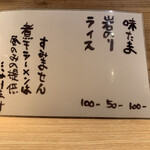 味たま 100-
岩のり 50-
ライス 100-
すみません
煮干ラーメンは
夜のみの提供
になります